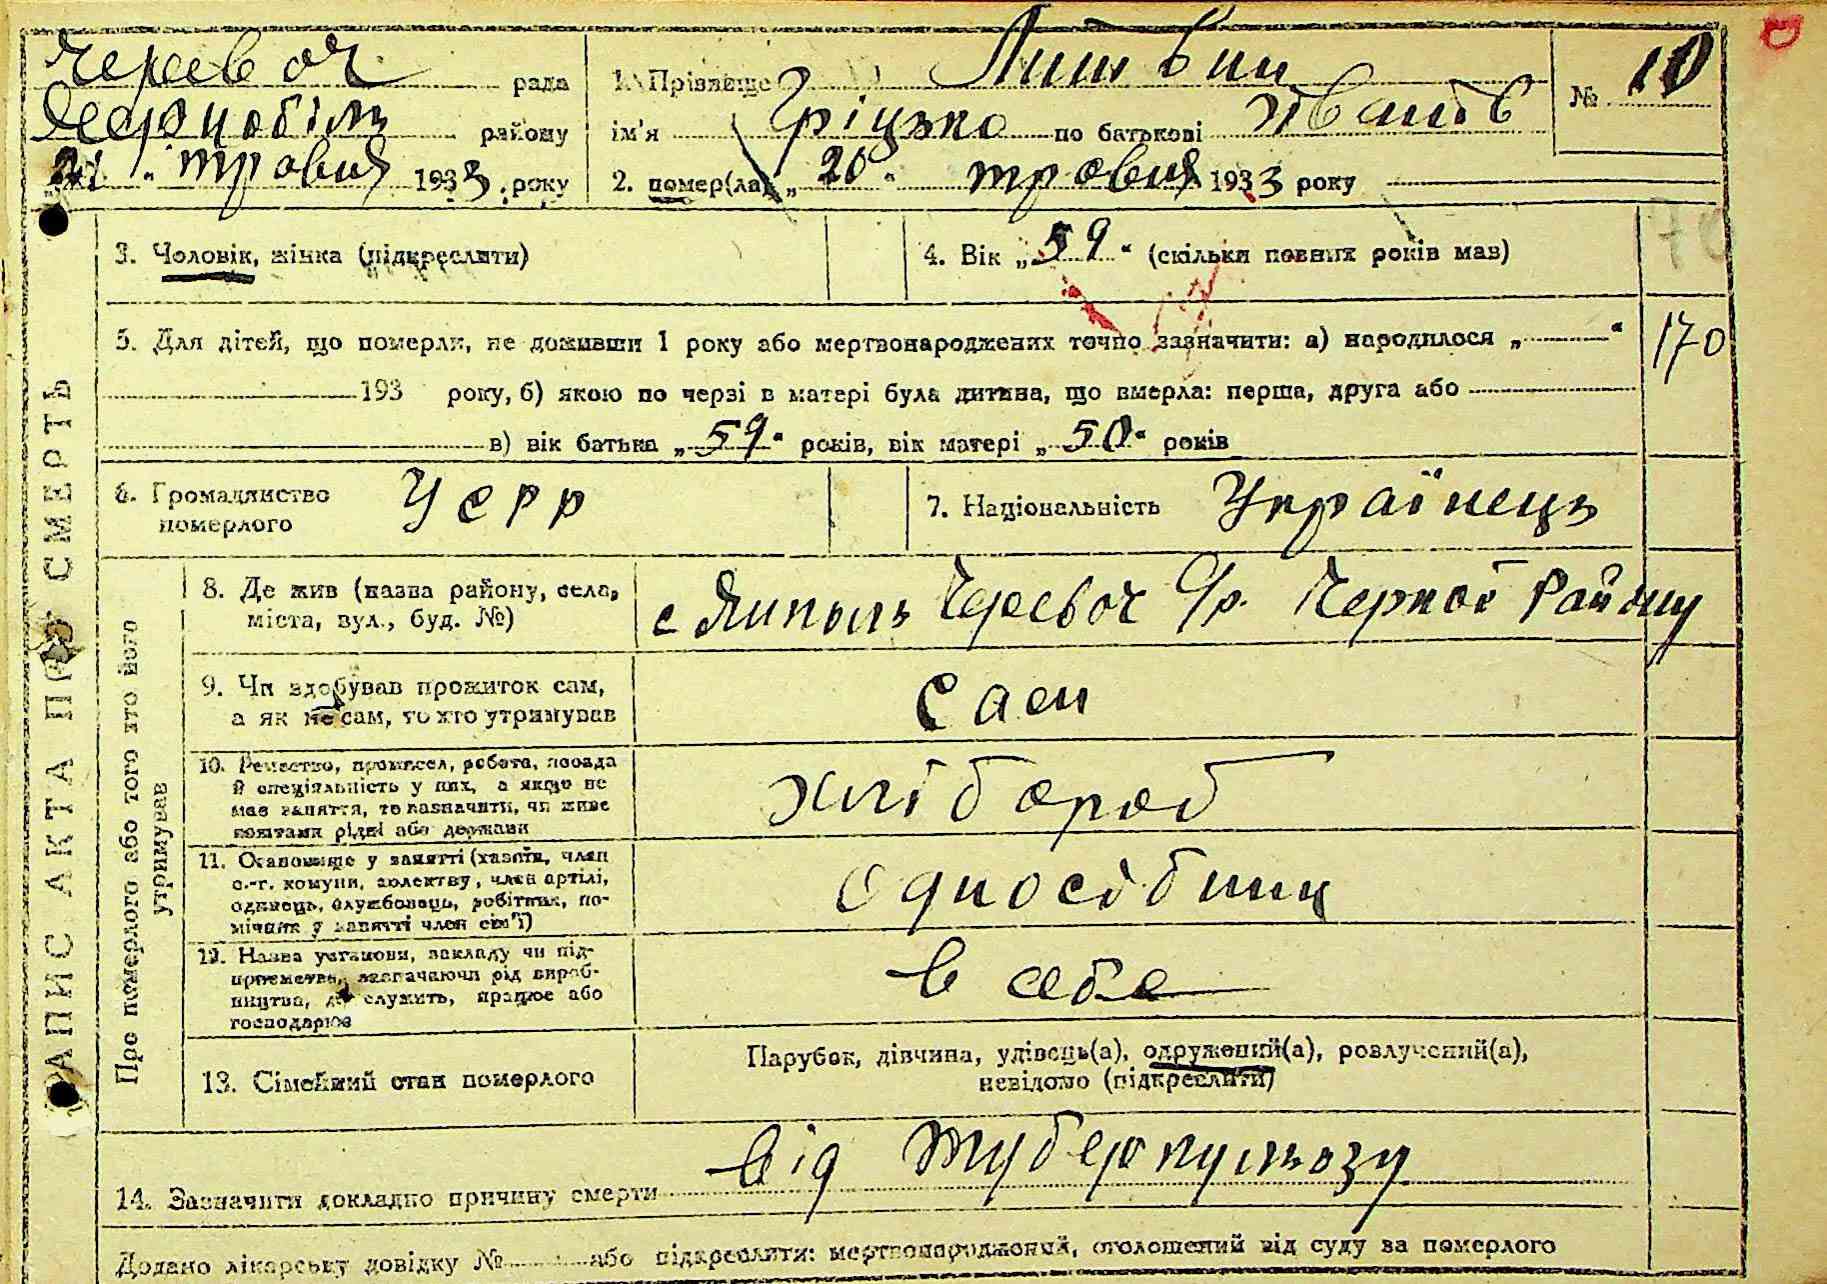 Черевач рада
Чорнобіль району
21 " травня 1933 року
1. Прізвище Литвин
ім'я Гріцько по батькові Іванов
2. помер(ла) „ 20 " травня 1933 року
№ 10
3. Чоловік, жінка (підкреслити)
4. Вік „ 59 " (скільки повних років мав)
70
5. Для дітей, що померли, не доживши 1 року або мертвонароджених точно зазначити: а) народилося „ "
170
193 року, б) якою по черзі в матері була дитина, що вмерла: перша, друга або
в) вік батька „ 59 " років, вік матері „ 50 " років
6. Громадянство
померлого
УСРР
7. Національність Українець
ЗАПИС АКТА ПРО СМЕРТЬ
Про померлого або того хто його
утримував
8. Де жив (назва району, села,
міста, вул., буд. №)
с Черевач С/р. Чорноб Району
9. Чи здобував прожиток сам,
а як не сам, то хто утримував
Сам
10. Ремество, промисел, робота, посада
й спеціяльність у них, а якщо не
мав заняття, то зазначити, чи живе
коштами рідні або держави
Хлібороб
11. Становище у занятті (хазяїн, член
с.-г. комуни, колективу, член артілі,
одинець, службовець, робітник, по-
мічник у занятті член сім'ї)
Одноосібник
12. Назва установи, закладу чи під-
приємства, зазначаючи рід вироб-
ництва, де служить, працює або
господарює
в себе
13. Сімейний стан померлого
Парубок, дівчина, удівець(а), одружений(а), розлучений(а),
невідомо (підкреслити)
14. Зазначити докладно причину смерти від туберкульозу
Додано лікарську довідку № або підкреслити: мертвонароджений, оголошений від суду за померлого